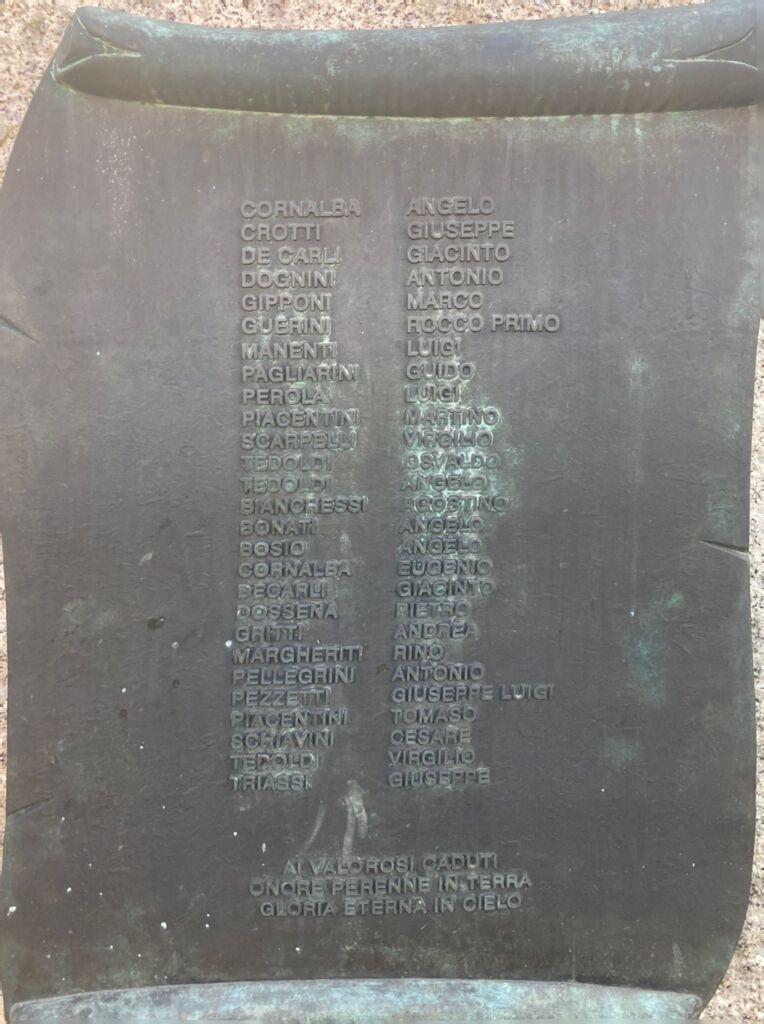 CORNALBA ANGELO
CROTTI GIUSEPPE
DE CARLI GIACINTO
DOGNINI ANTONIO
GIPPONI MARCO
GUERINI ROCCO PRIMO
MANENTI LUIGI
PAGLIARINI GUIDO
PEROLA LUIGI
PIACENTINI MARTINO
SCARPELLI VIRGILIO
TEDOLDI OSVALDO
TEDOLDI ANGELO
BIANCHESSI AGOSTINO
BONATI ANGELO
BOSIO ANGELO
CORNALBA EUGENIO
DECARLI GIACINTO
DOSSENA PIETRO
GRITTI ANDREA
MARGHERITI RINO
PELLEGRINI ANTONIO
PEZZETTI GIUSEPPE LUIGI
PIACENTINI TOMASO
SCHIAVINI CESARE
TEDOLDI VIRGILIO
TRIASSI GIUSEPPE
AI VALOROSI CADUTI
ONORE PERENNE IN TERRA
GLORIA ETERNA IN CIELO